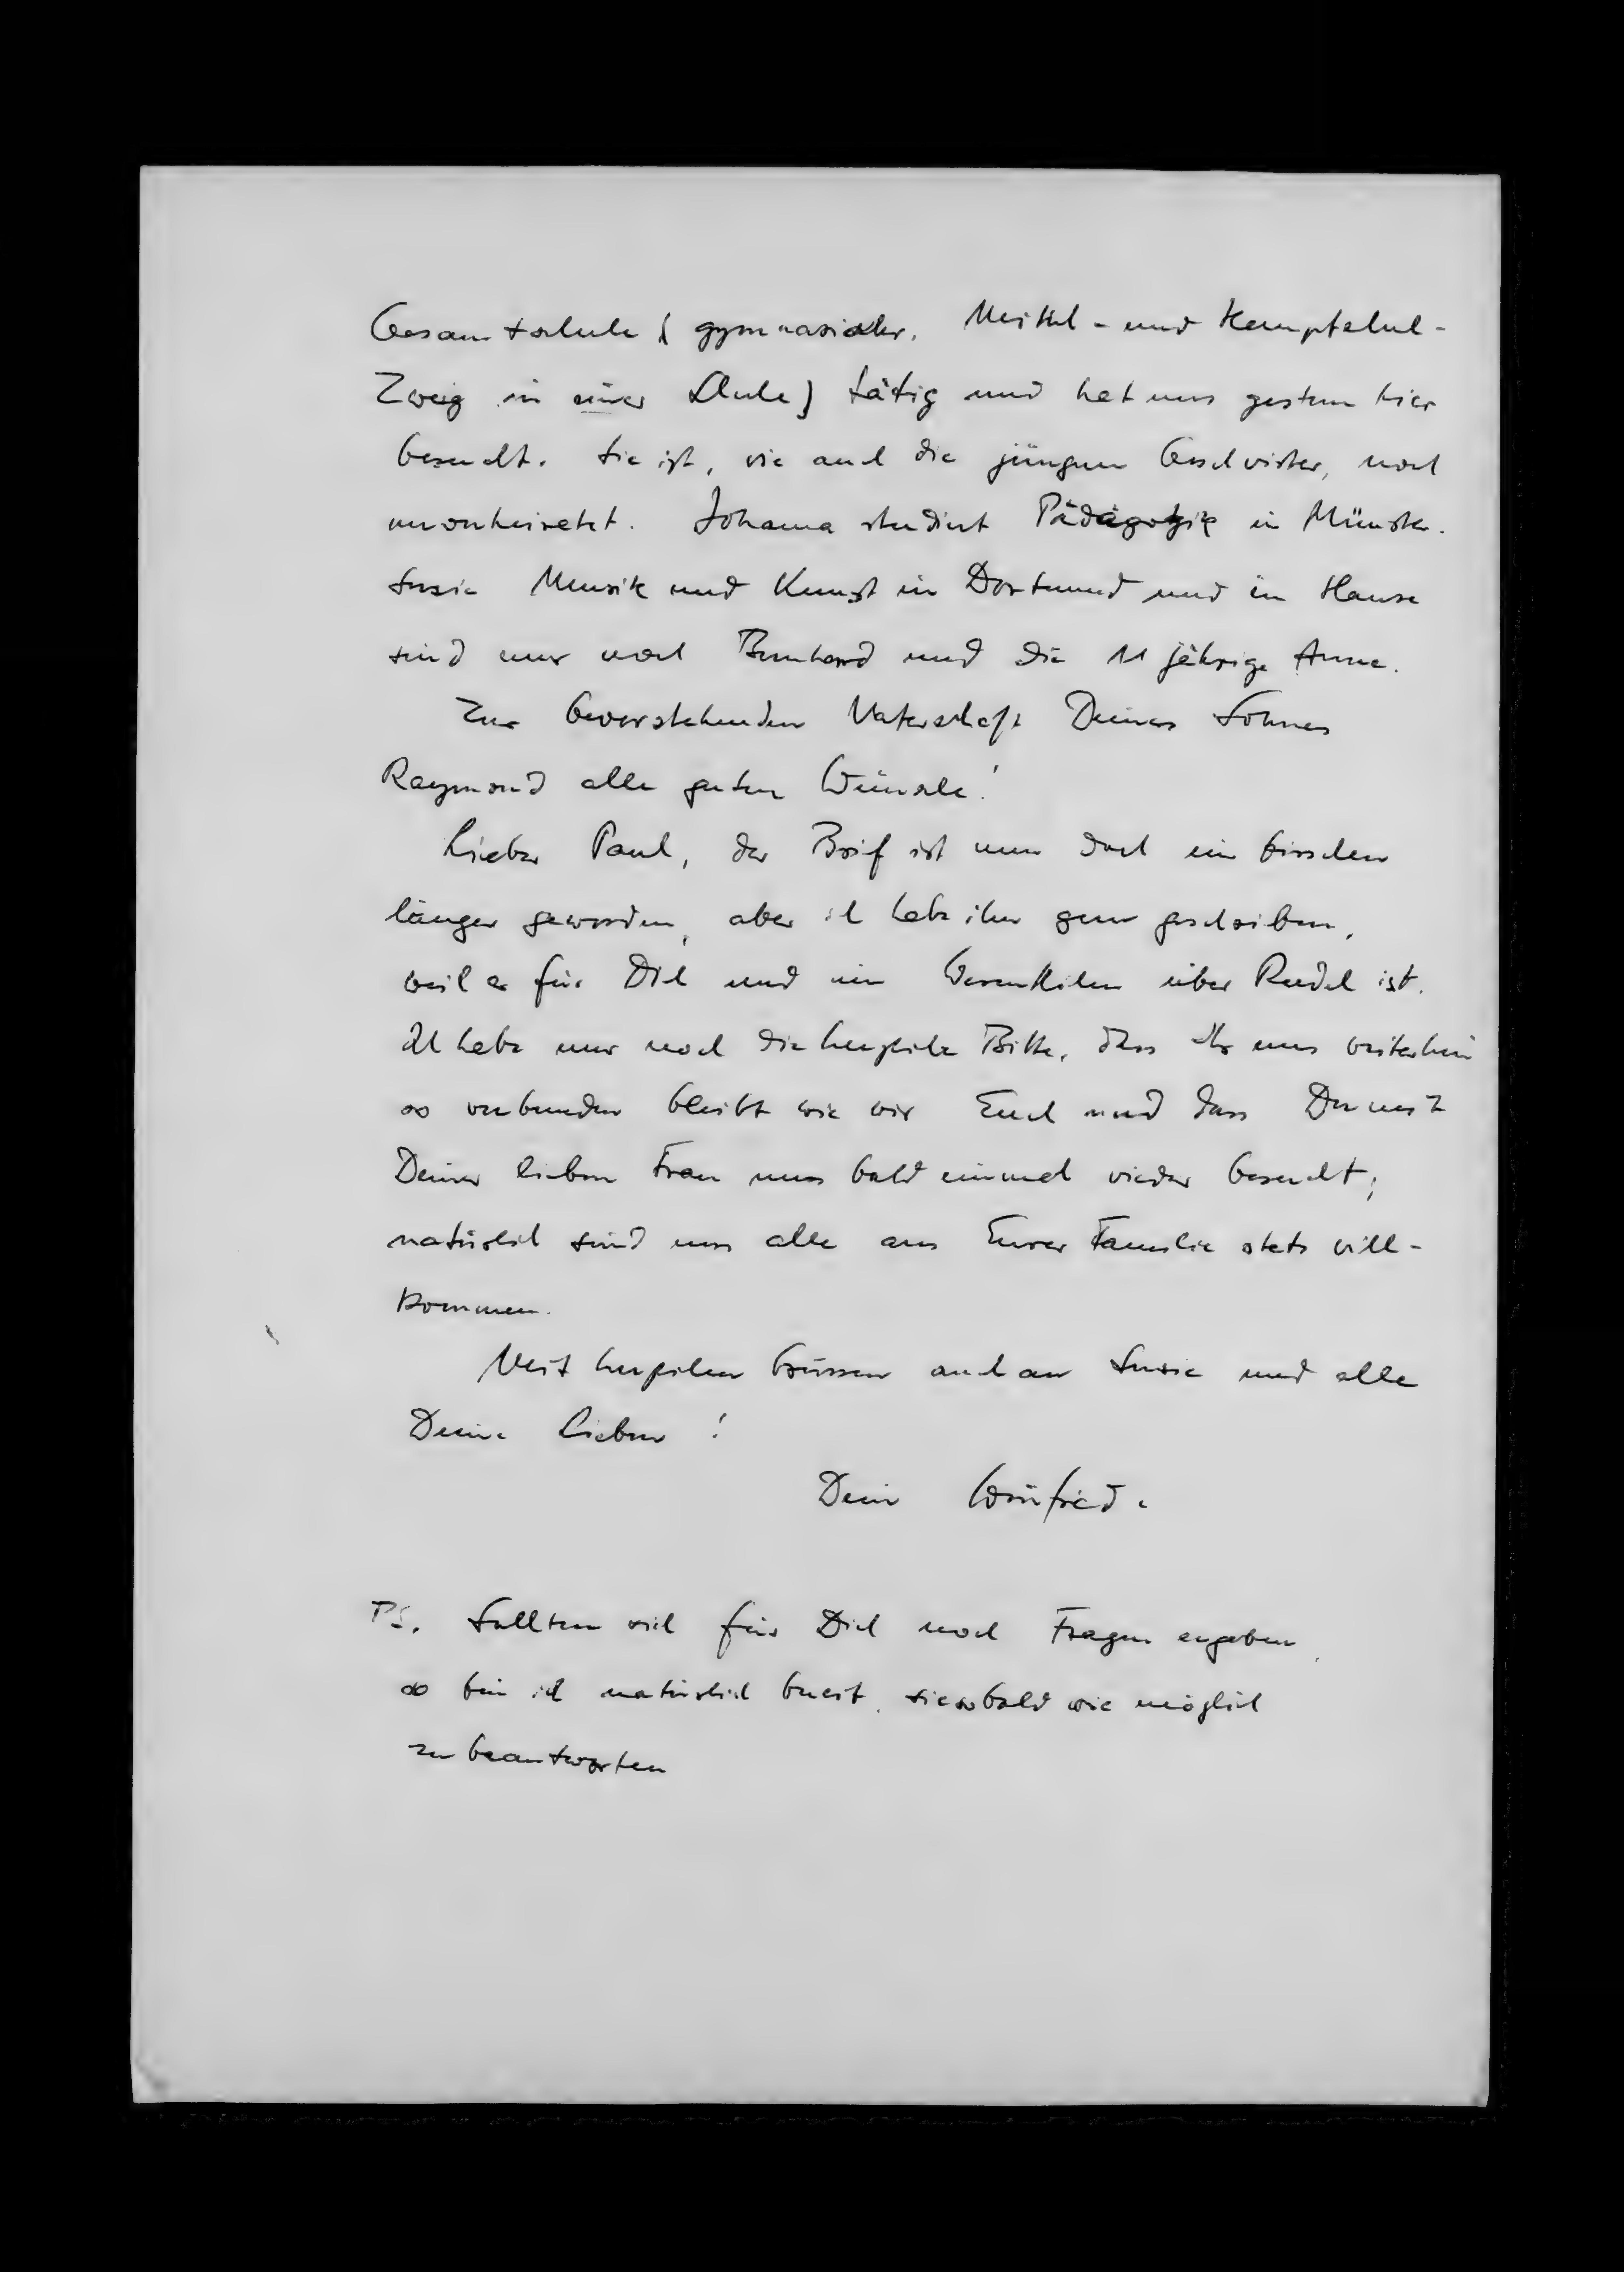 Gesamtschule (gymnasialer, Mittel- und Hauptschul-
Zweig in einer Schule) tätig und hat uns gestern hier
besucht. Sie ist, wie auch die jüngeren Geschwister, noch
unverheiratet. Johanna studiert Pädagogik in Münster.
Susie Musik und Kunst in Dortmund und im Hause
sind nur noch Bernhard und die 11 jährige Anne.
Zur bevorstehenden Vaterschaft Deines Sohnes
Raymond alle guten Wünsche!
Lieber Paul, der Brief ist nun doch ein bisschen
länger geworden, aber ich habe ihn gern geschrieben,
weil er für Dich und ein über Rudel ist.
Ich habe nur noch die herzliche Bitte, dass Ihr uns weiterhin
so verbunden bleibt wie wir Euch und dass Du mit
Deiner lieben Frau uns bald einmal wieder besucht;
natürlich sind uns alle aus Eurer Familie stets will-
kommen.
Mit herzlichen Grüssen auch an Susie und alle
Deine Lieben!
Dein Winfried.
PS. Sollten sich für Dich noch Fragen ergeben,
so bin ich natürlich bereit, sie sobald wie möglich
zu beantworten